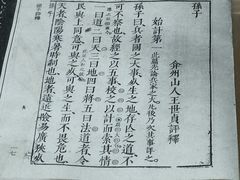 孫子
弇州山人王世貞評釋
始計第一
孫子曰兵者國之大事死生之地存亡之道不
可不察也故經之以五事校之以計而索其情
一曰道二曰天三曰地四曰將五曰法道者令
民與上同意可與之死可與之生而不畏危也
天者陰陽寒暑時制也地者遠近險易廣狹死